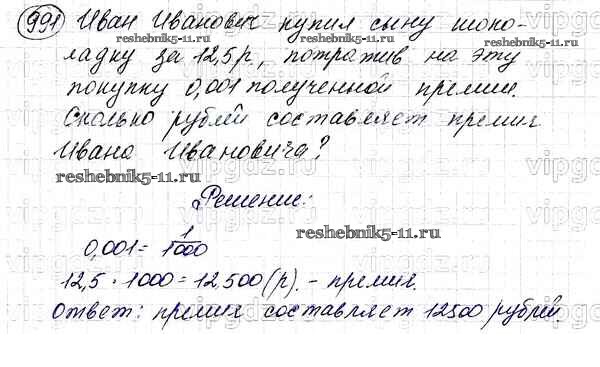 991 Иван Иванович купил сыну шоко-
reshebnik5-11.ru reshebnik5-11.ru
ладку за 12,5 р, потратив на эту
покупку 0,001 полученной премии.
Сколько рублей составляет премия
Ивана Ивановича?
reshebnik5-11.ru
Решение:
reshebnik5-11.ru
0,001 = 1/1000
12,5 · 1000 = 12500 (р). - премия.
Ответ: премия составляет 12500 рублей.